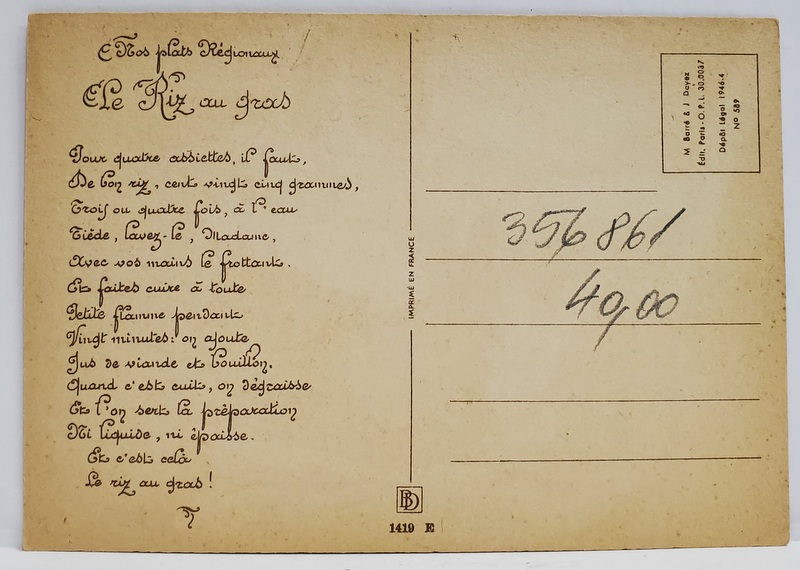 Nos plats Régionaux
Le Riz au gras
Pour quatre assiettes, il faut,
De bon riz, cent vingt cinq grammes,
Trois ou quatre fois, à l'eau
Tiède, lavez-le, Madame,
Avec vos mains le frottant.
Et faites cuire à toute
Petite flamme pendant
Vingt minutes: on ajoute
Jus de viande et bouillon.
Quand c'est cuit, on dégraisse
Et l'on sert la préparation
Ni liquide, ni épaisse.
Et c'est celà
Le riz au gras!
IMPRIMÉ EN FRANCE
BD
1419 E
M. Barré & J. Dayez
Édit. Paris - O.P.L. 30.0037
Dépôt Légal 1946-4
No 589
356861
40,00